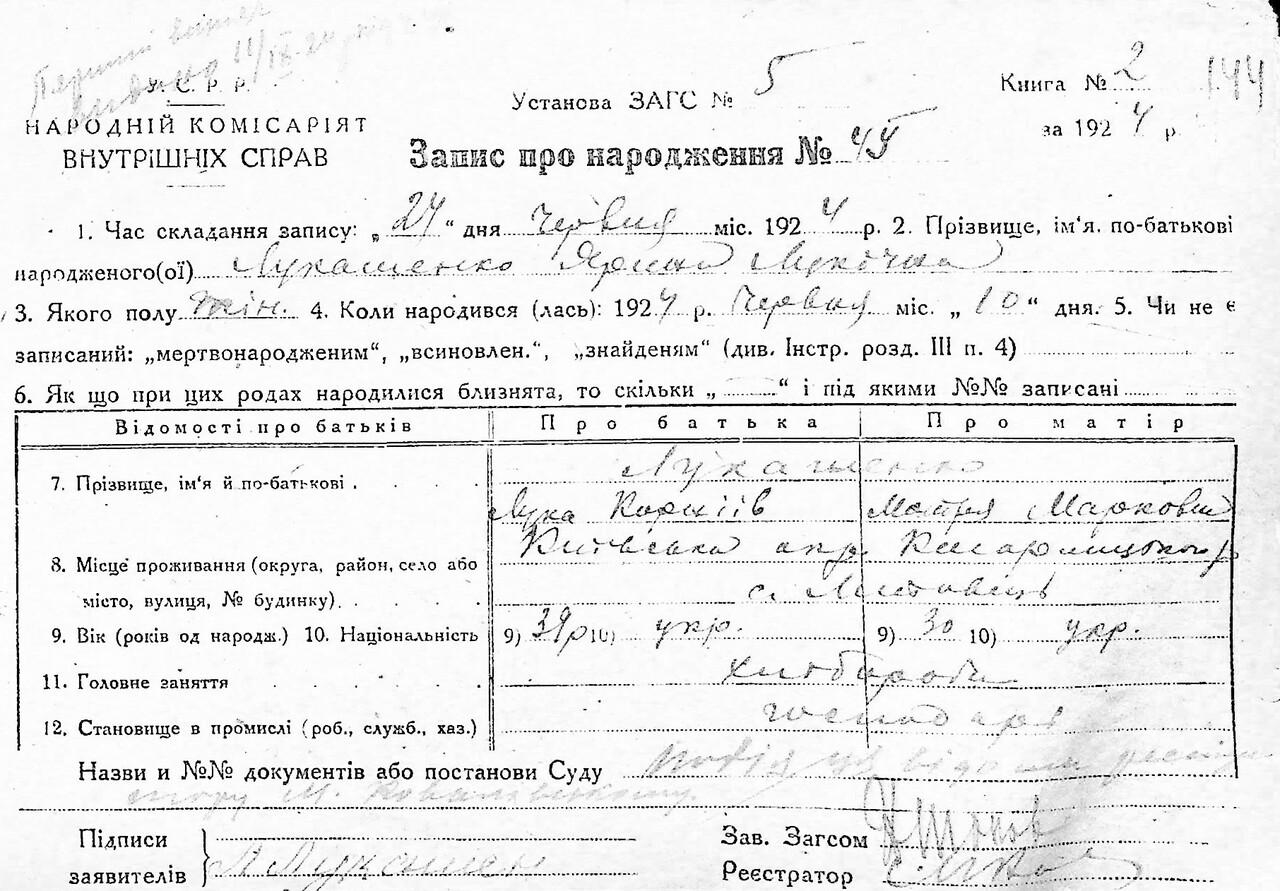 Перший
У. С. Р. Р.
НАРОДНІЙ КОМІСАРІЯТ
ВНУТРІШНІХ СПРАВ
Установа ЗАГС № 5
Книга № 2 144
за 1924 р.
Запис про народження № 45
1. Час складання запису: „24“ дня Червня міс. 1924 р. 2. Прізвище, ім'я. по-батькові
народженого(ої) Лукашенко Ярина Лукична
3. Якого полу жін. 4. Коли народився (лась): 1924 р. Червня міс. „10“ дня. 5. Чи не є
записаний: „мертвонародженим“, „всиновлен.“, „знайденям“ (див. Інстр. розд. III п. 4)
6. Як що при цих родах народилися близнята, то скільки „ “ і під якими №№ записані
Відомості про батьків Про батька Про матір
7. Прізвище, ім'я й по-батькові Лукашенко
Лука Корніїв Мотря Марковна
8. Місце проживання (округа, район, село або Київська окр. Кагарлицького р.
місто, вулиця, № будинку). с.
9. Вік (років од народж.) 10. Національність 9) 39р 10) укр. 9) 30 10) укр.
11. Головне заняття хлібороби
12. Становище в промислі (роб., служб., хаз.) господарі
Назви и №№ документів або постанови Суду
Підписи
заявителів
Зав. Загсом
Реєстратор